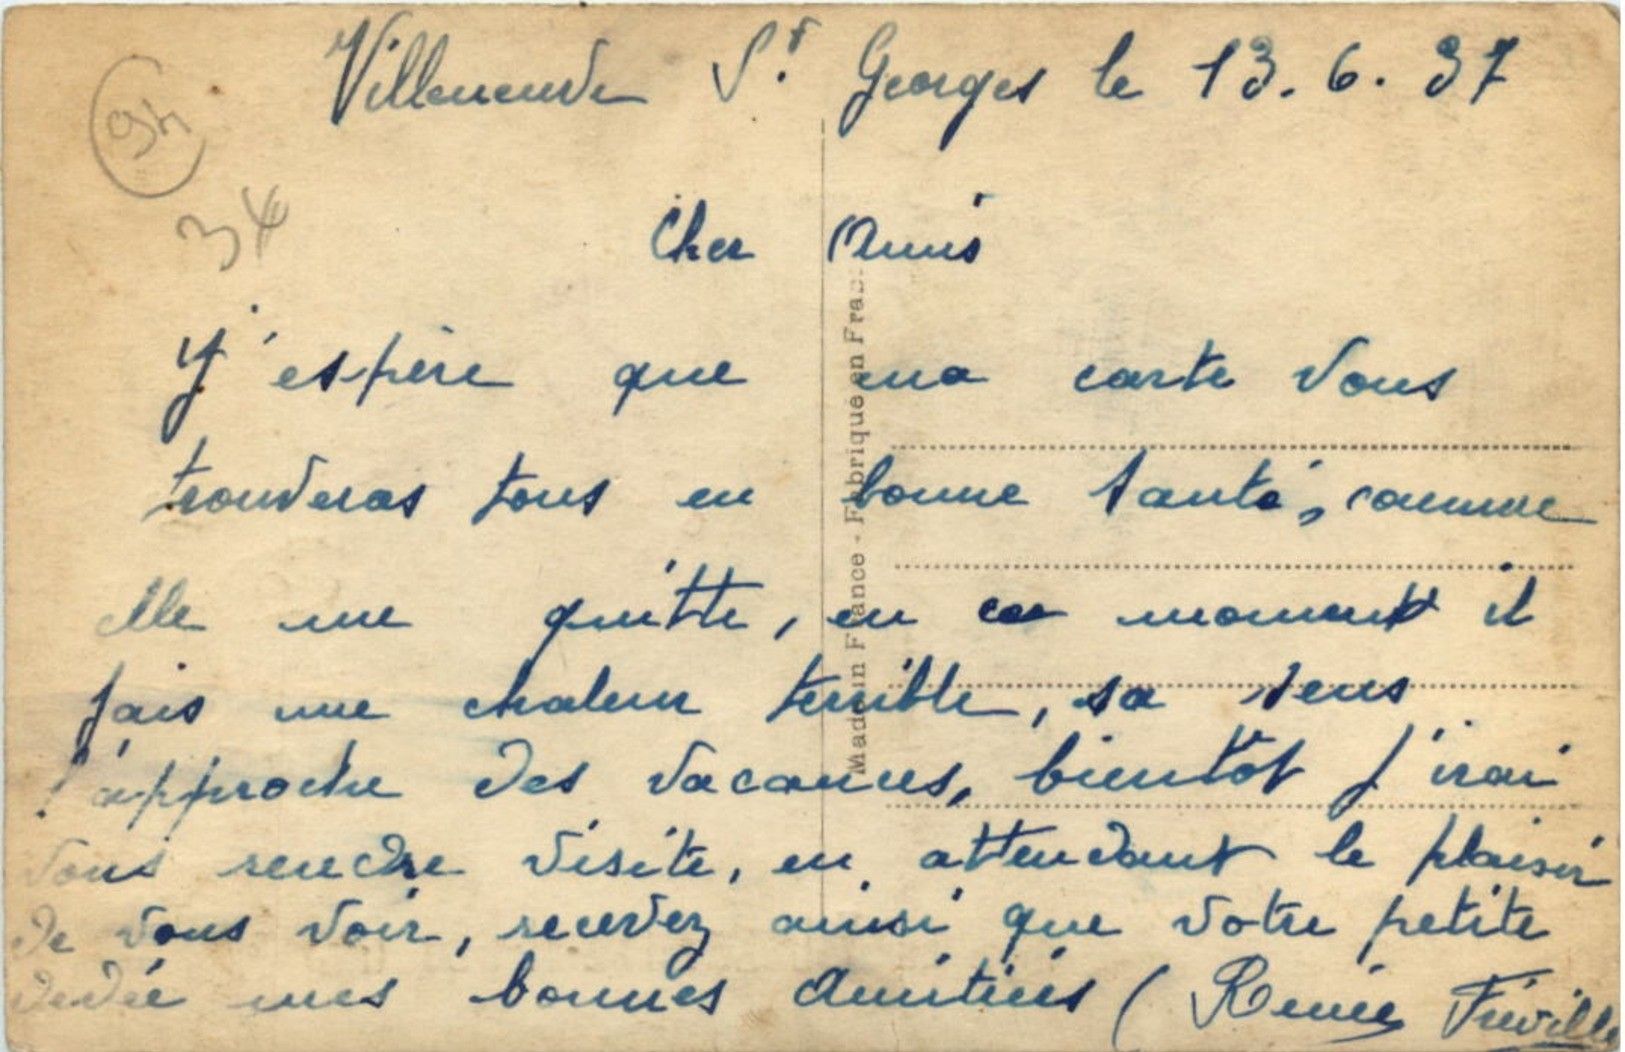 Villeneuve St Georges le 13.6.37
94
34
Cher Amis
J'espère que ma carte vous
trouveras tous en bonne santé, comme
elle me quitte, en ce moment il
fais une chaleur terrible, sa sens
l'approche des vacances, bientôt j'irai
vous rendre visite, en attendant le plaisir
de vous voir, recevez ainsi que votre petite
dédée mes bonnes amitiés (Renée Fréville
Made in France - Fabriqué en Fra